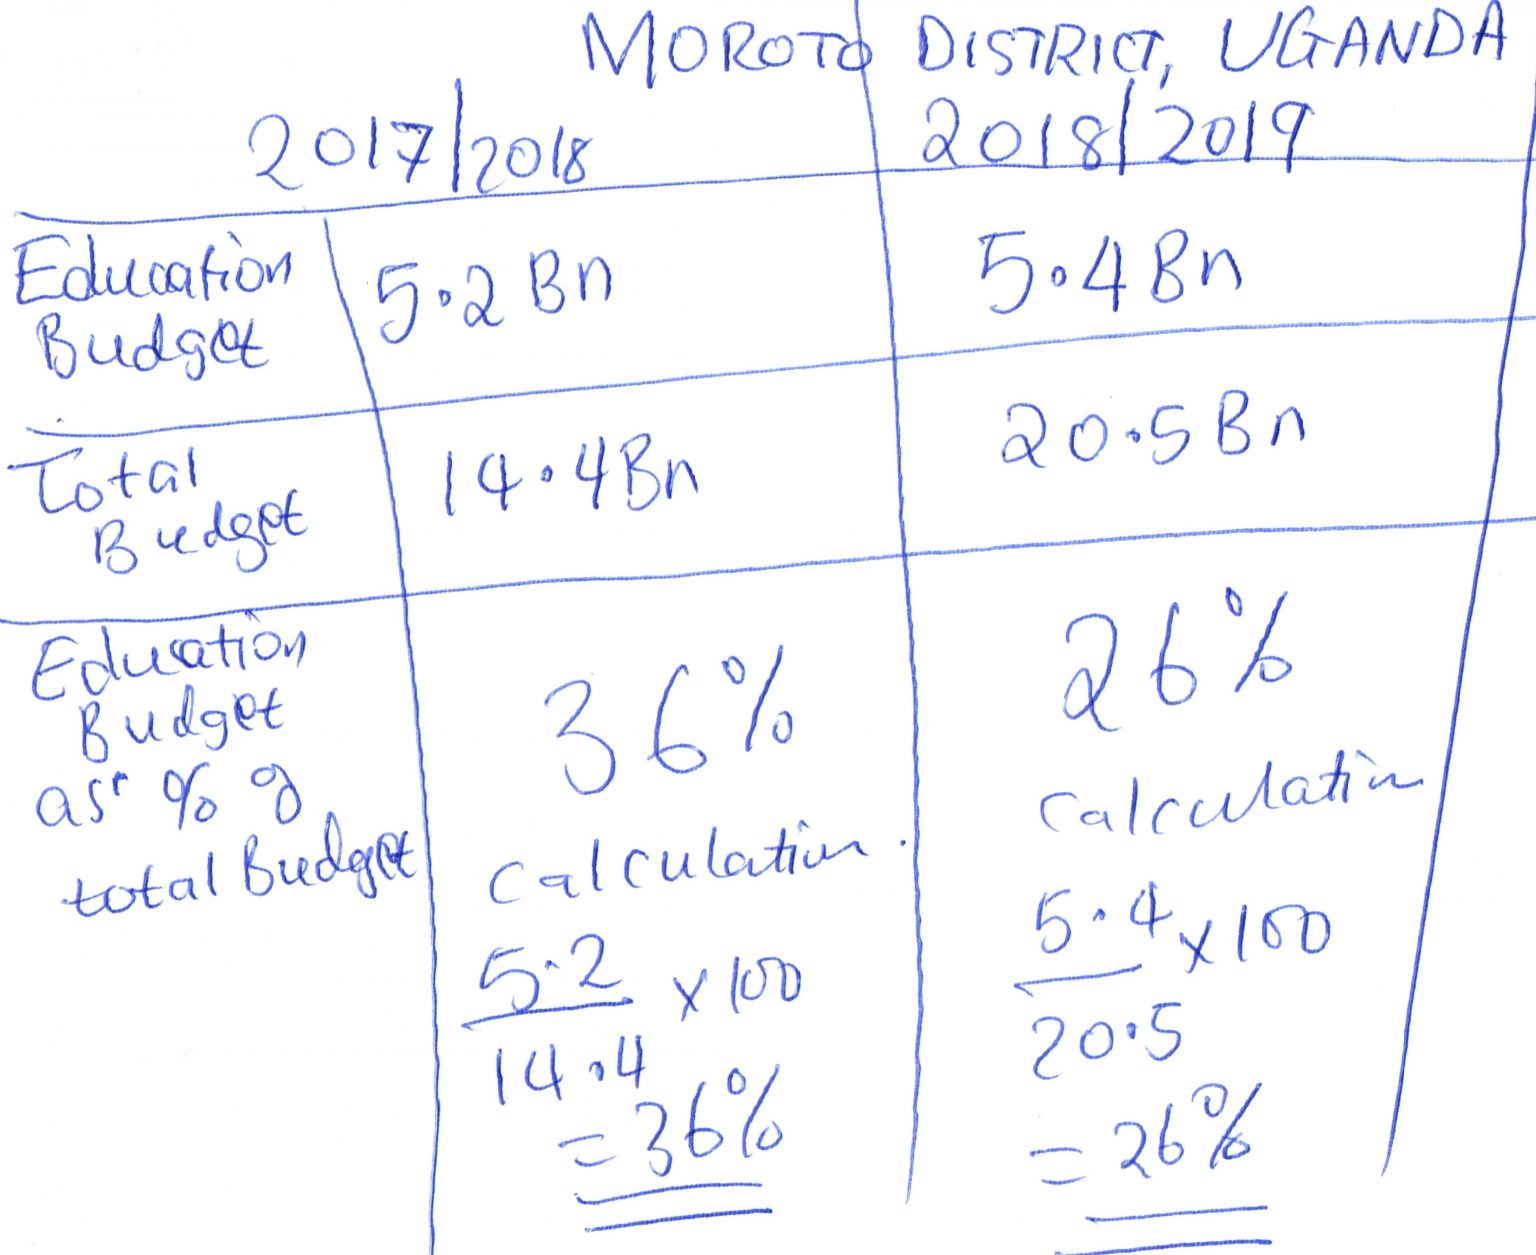 MOROTO DISTRICT, UGANDA
2017/2018 2018/2019
Education Budget 5.2 Bn 5.4 Bn
Total Budget 14.4 Bn 20.5 Bn
Education
Budget
as % of
total Budget
36%
calculation.
5.2
14.4
x 100
= 36%
26%
calculation
5.4
20.5
x 100
= 26%